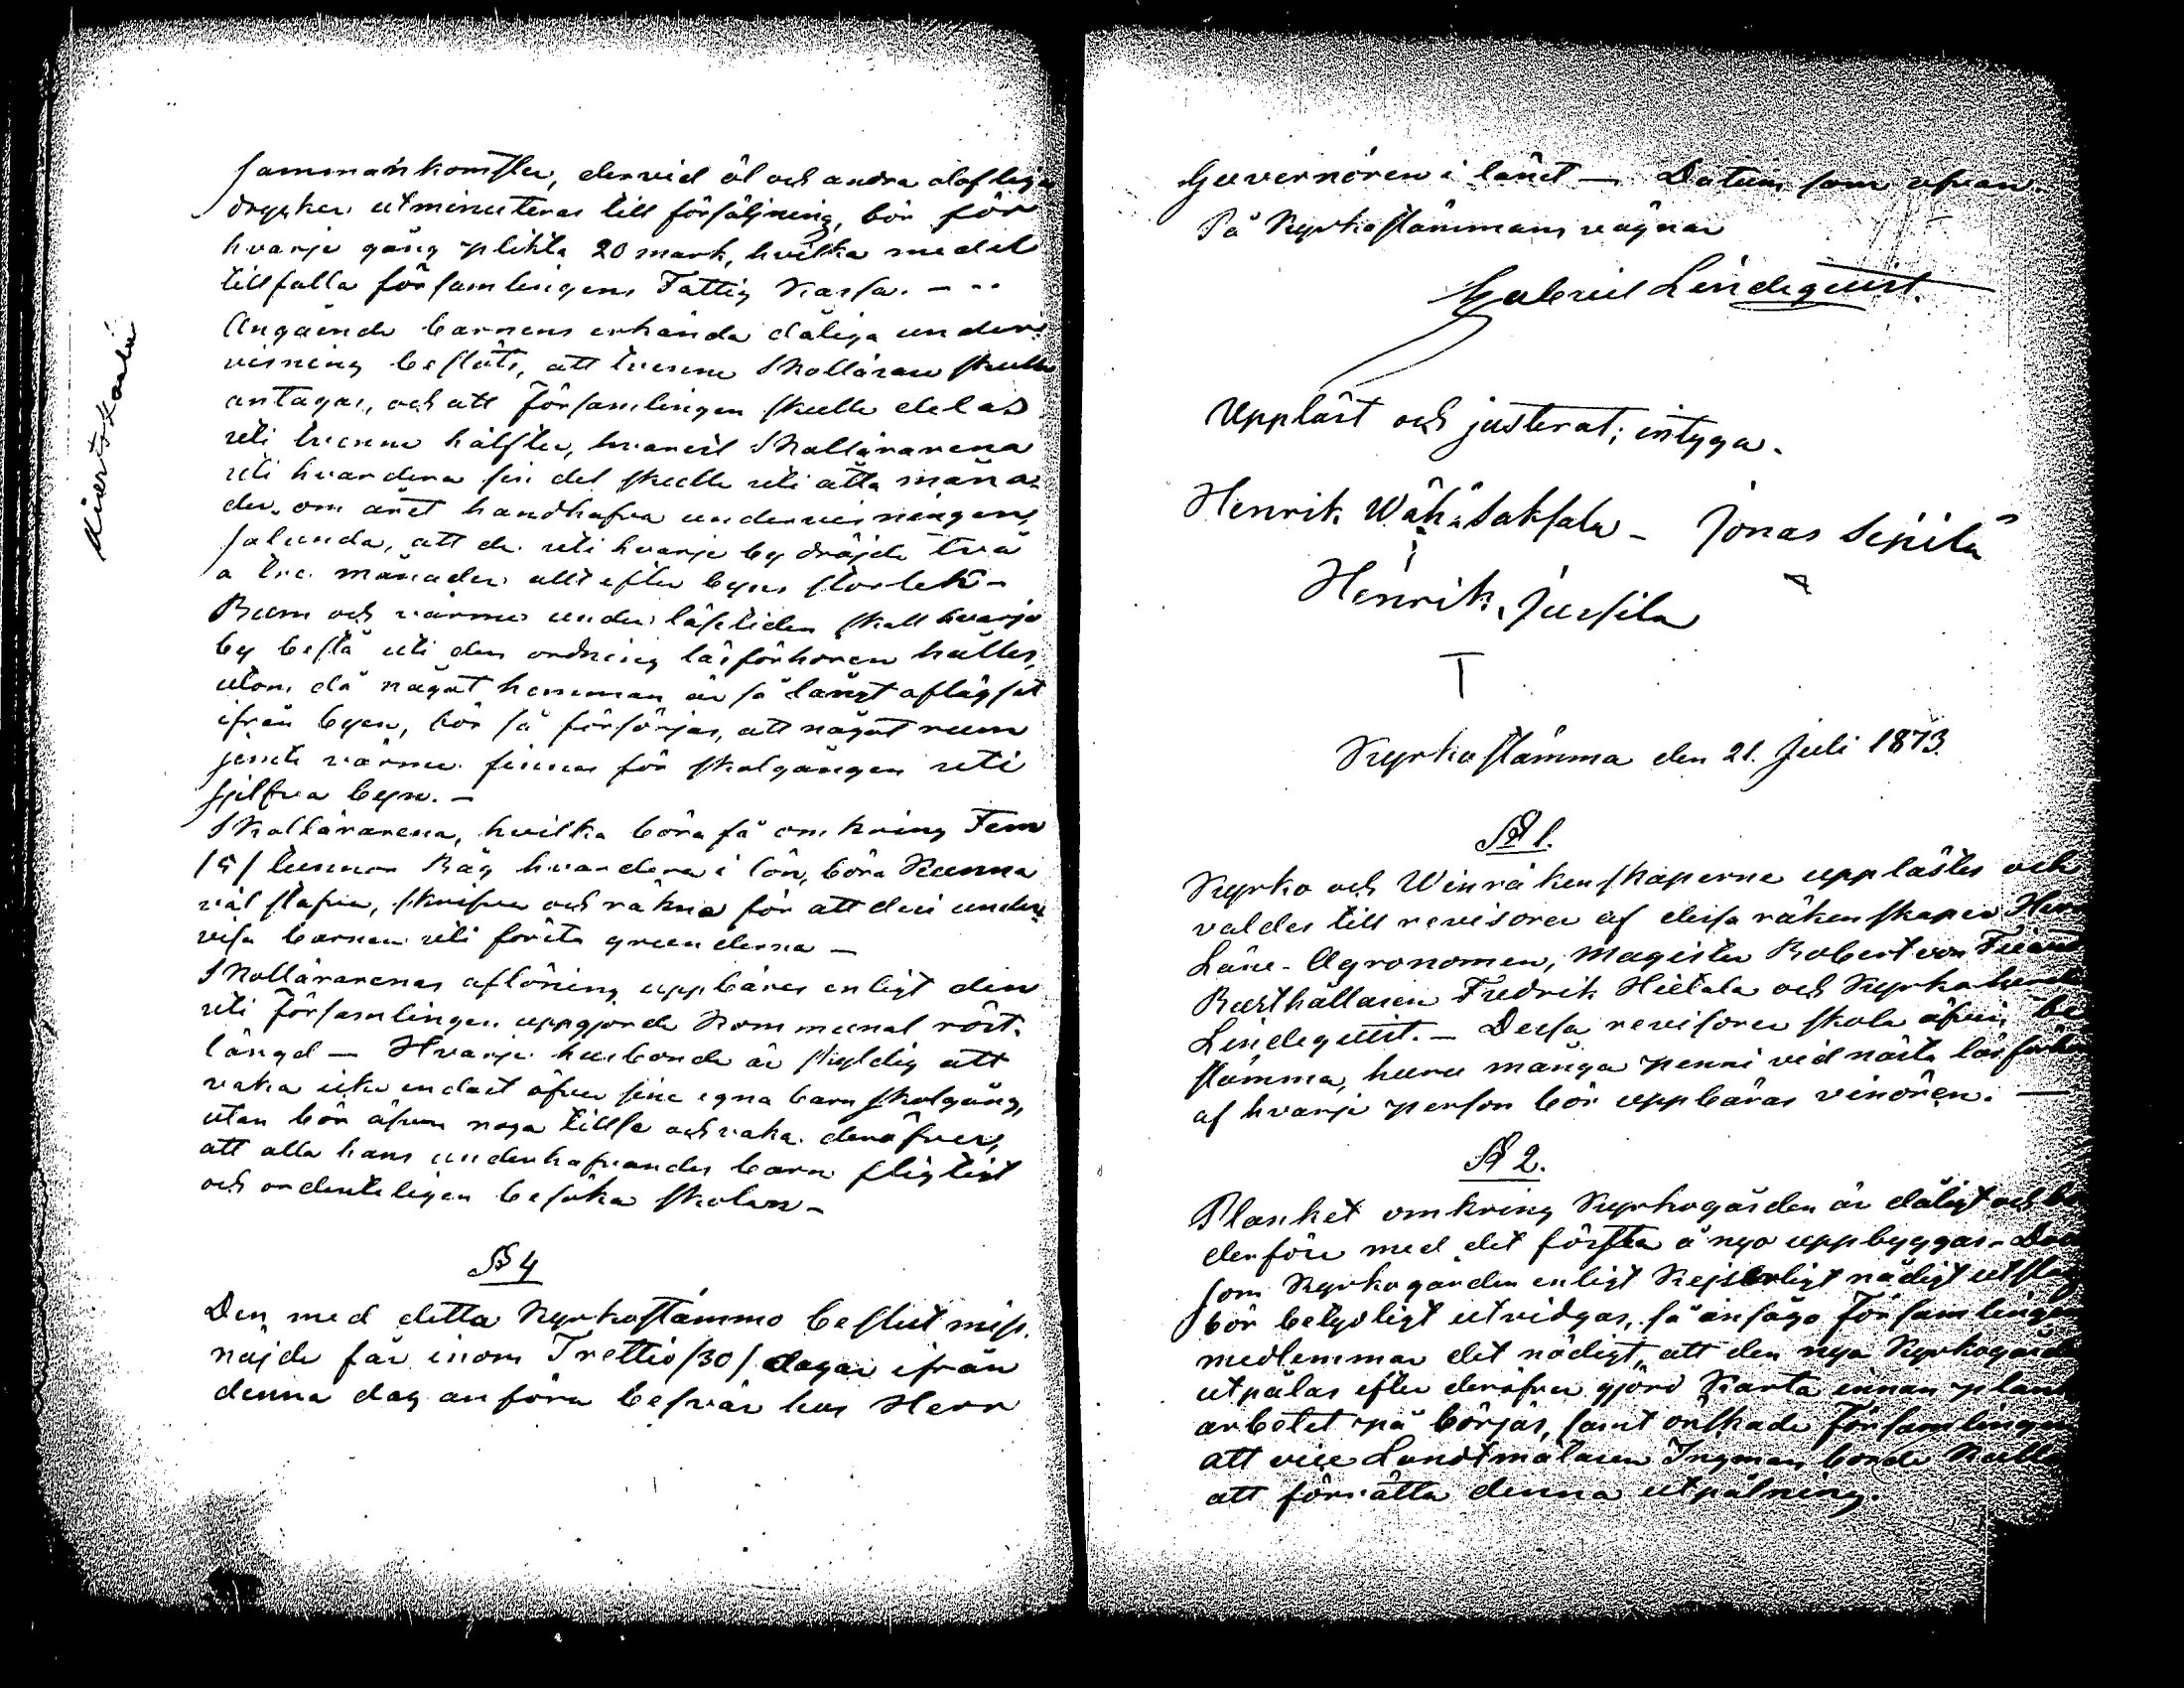 sammankomster, dervid öl och andra olofliga
drycker utminuteras till försäljning, bör för
hvarje gång plikta 20 mark, hvilka medel
tillfalla församlingens Fattig Kassa. —
Angående barnens erhända dåliga under-
visning beslöts, att tvenne Skollärare skulle
antagas, och att Församlingen skulle delas
uti tvenne hälfter, hvaruti Skollärarena
uti hvardera sin del skulle uti åtta måna-
der om året handhafva undervisningen,
salunda, att de uti hvarje by dröjde två
a tre månader allt efter byns storlek —
Rum och värme under lästiden skall hvarje
by bestå uti den ordning läsförhören hålles,
utom då något hemman är så långt aflägset
ifrån byen, bör så försörjas, att något rum
jemte värme finnes för skolgången uti
sjelfva byn. —
Skollärarena, hvilka böra få omkring Fem
/5/ tunnor Råg hvardera i lön, böra Kunna
väl stafva, skrifva och räkna för att deri under-
visa barnen uti första grunderna —
Skollärarenas aflöning uppbäres enligt den
uti Församlingen uppgjorde Kommunal röst-
längd — Hvarje husbonde är skyldig att
vaka icke endast öfver sine egna barns skolgång,
utan bör äfven noga tillse och vaka deröfver,
att alla hans underhafvandes barn flitigt
och ordenteligen besöka skolan —
§ 4
Den med detta Kyrkostämmo beslut miss-
nöjde får inom Trettio /30/ dagar ifrån
denna dag anföra besvär hos Herr
Guvernören i länet — Datum som ofvan.
På Kyrkostämmans vägnar
Gabriel Lindequist.
Uppläst och justerat; intyga.
Henrik Wähäsaksala — Jonas Sipilä
Henrik Jussila
Kyrkostämma den 21. Juli 1873.
§ 1.
Kyrko och Vinräkenskaperne upplästes och
valdes till revisorer af dessa räkenskaper Herr
Läne-Agronomen, Magister Robert von
Rusthållaren Fredrik Hietala och Kyrkoherde
Lindequist. — Dessa revisorer skola äfven be-
stämma, huru många penni vid nästa läsförhör
af hvarje person bör uppbäras vinören. —
§ 2.
Planket omkring Kyrkogården är dåligt och bör
derföre med det första å nyo uppbyggas. Då
som Kyrkogården enligt Kejserligt nådigt utslag
bör betydligt utvidgas, så ansågo Församlingens
medlemmar det nödigt, att den nya Kyrkogården
utpålas efter deröfver gjord Karta innan plank
arbetet på börjas, samt önskade Församlingen
att vice Landtmätaren Ingman borde Kallas
att förrätta denna utpålning.